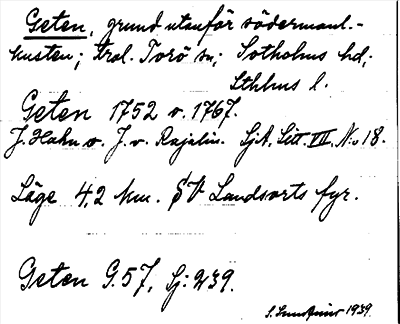 Geten, grund utanför södermanl.-
kusten; Trol. Torö sn; Sotholms hd;
Sthlms l.
Geten 1752 o. 1767.
J. Hahn o. J. v. Rajalin. SjA. Litt. VII. No 18.
Läge 4,2 km. SV Landsorts fyr.
Geten G.57, Sj: 239.
S. 1939.